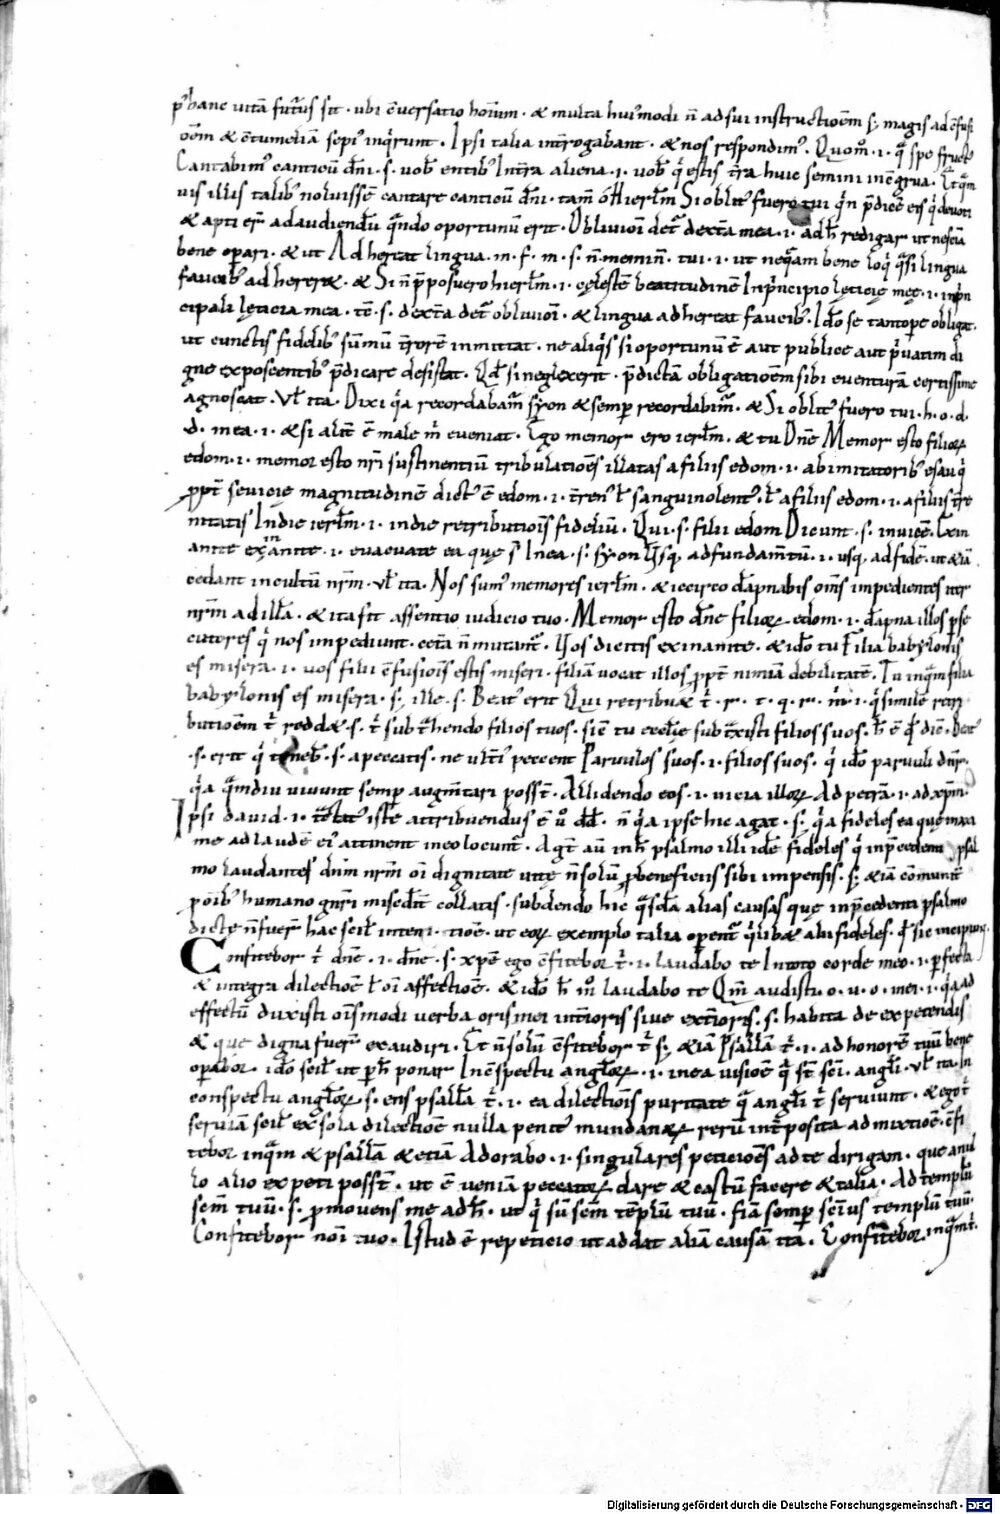 p' hanc uitā futur̄ſ ſit · ubi c̄uerſatio hoīum · & multa hui'modi n̄ ad ſui inſtructioēm ſ; magiſ ad c̄fuſi
oēm & c̄tumeliā ſepi' inq̄runt · Ipſi talia int̄rogabant · & noſ reſpondim' · Quom̊ · i · q̄ ſpe fruct'
Cantabim' canticū dn̄i · ſ · uob̄ entib' In t̄ra aliena · i · uob̄ q' eſtiſ t̄ra huic ſemini incōgrua ·
uiſ illiſ talib' noluiſſē cantare canticū dn̄i · tam̄ o Hierl̄m Si oblit' fuero tui q'n p̄dicē eiſ q' deuoti
& apti er̄ ad audiendū q̄ndo oportunū erit · Obliuioi det' dext̄a mea · i · adh̄ redigar ut neſciā
bene op̄ari · & ut Adhereat lingua · m · f · m · ſ · n̄ memin̄ · tui · i · ut neq̄am bene loq' q̄ſi lingua
faucib' adherer& · & Si n̄ p̄poſuero hierl̄m · i · cęleſtē beatitudinē In p'ncipio lętície meę · i · in p'n
cipali lęticia mea · tc̄ · ſ · dext̄a det' obliuioi · & lingua adhereat faucib' · Ido ſe tantope obligat ·
ut cunctiſ fidelib' ſūmū t̄rorē inmittat · ne aliq'ſ ſi oportunū ē aut publice aut p'uatim di
gne expoſcentib' p̄dicare deſiſtat · Qd̄ ſi neglexerit · p̄dictā obligatioēm ſibi euenturā certiſſime
agnoſcat · Vl̄ ita · Dixi q'a recordabam̄ ſyon & ſemp recordabim̄ · & Si oblit' fuero tui · h · o · d ·
d · mea · i · & ſi alit̄ ē male m' eueniat · Ego memor ero ierl̄m · & tu Dn̄e Memor eſto filioꝝ
edom · i · memor eſto nr̄i ſuſtinentiū tribulatioēſ illataſ a filiiſ edom · i · ab imitatorib' eſau q'
ꝓpt̄ ſeuicie magnitudinē dict' ē edom · i · t̄ren' l̄ ſanguinolent' · l̄ a filiiſ edom · i · a filiiſ t̄re
nitatiſ In die ierl̄m · i · in die retributioīſ fideliū · Qui · ſ · filii edom Dicunt · ſ · inuicē · Exin
anite exinanite · i · euacuate ea quę ſ' In ea · ſ · ſyon Uſq; ad fundam̄tū · i · uſq; ad fidē · ut &iā
cedant in cultū nr̄m · Vl̄ ita · Noſ ſum' memoreſ ierl̄m · & iccirco dāpnabiſ om̄ſ impedienteſ iter
nr̄m ad illā · & ita fit aſſentio iudicio tuo · Memor eſto dn̄e filioꝝ edom · i · dāpna illoſ pſe
cutoreſ q' noſ impediunt · cetā n̄ mutant̄ · Hoſ dicttiſ exinanite · & ido tu Filia babyloniſ
eſ miſera · i · uoſ filii c̄fuſioīſ eſtiſ miſeri · filiā uocat illoſ ꝓpt̄ nimiā debilitatē · Tu inq̄m filia
babyloniſ eſ miſera · ſ; ille · ſ · Beat' erit Qui retribu& t' · r · t · q · r · n̄ · i · q' ſimilē retri
butioēm t' redd& · ſ · t' ſubt̄hendo filioſ tuoſ · ſic̄ tu eccl̄ie ſubt̄xiſti filioſ ſuoſ · h̄ ē q̄ dic̄ · Beat'
· ſ · erit q' teneb̄ · ſ · a peccatiſ · ne ult̄i' peccent Paruuloſ ſuoſ · i · filioſ ſuoſ · q' ido paruuli dn̄r̄ ·
q'a q̄mdiu uiuunt ſemp augm̄tari poſſn̄t · Allidendo eoſ · i · uicia illoꝝ Ad petrā · i · ad xp̄m ·
Ipſi dauid · i · totat' iſte attribuenduſ ē u̇ dd̄ · n̄ q'a ipſe hic agat · ſ; q'a fideleſ ea quę maxi
me ad laudē ei' attinent in eo locunt̄ · Agt̄ aū in h̄ pſalmo illi idē fideleſ q' in p̄cedenti pſal
mo laudanteſ dn̄m nr̄m oī dignitate uitę n̄ ſolū ꝓ beneficiiſ ſibi impenſiſ · ſ; &iā cōmunit̄
p oīb' humano gn̄ri miſedit̄ collatiſ · ſubdendo hic q̄ſda aliaſ cauſaſ quę in p̄cedenti pſalmo
dictę n̄ fuer̄ hac ſcil̄ intentione · ut eoꝝ exemplo talia opent̄ q'lib& alii fideleſ · q' ſic incipiunt ·
Confitebor t' dn̄e · i · dn̄e · ſ · xp̄e ego c̄fitebor t' · i · laudabo te In toto corde meo · i · pfecta
& integra dilectioē l̄ oī affectioē · & ido h̄ m̊ laudabo te Qm̄ audiſti · o · u · o · mei · i · q'a ad
effectū duxiſti oīſmodi uerba oriſ mei int̄ioriſ ſiue ext̄ioriſ · ſ · habita de expetendiſ
& que digna fuer̄ exaudiri · Et n̄ ſolū c̄fitebor t' ſ; &iā Pſallā t' · i · ad honorē tuū bene
opabor · ido ſcil̄ ut p h̄ ponar In c̄ſpectu angl̄oꝝ · i · in ea uiſioē q̄ ſt̄ ſci · angl̄i · Vl̄ ita · In
conſpectu angl̄oꝝ · ſ · enſ pſallā t' · i · ea dilectioīſ puritate q̄ angl̄i t' ſeruiunt · & ego t'
ſeruiā ſcil̄ ex ſola dilectioē nulla penit' mundanaꝝ rerū int̄poſita admixtioē · c̄fi
tebor inq̄m & pſallā & etiā Adorabo · i · ſingulareſ peticioēſ ad te dirigam · que a nul
lo alio expeti poſſn̄t · ut ē ueniā peccatoꝝ dare & caſtū facere & talia · Ad templū
ſcm̄ tuū · ſ · ꝓmouenſ me adh̄ · ut q' ſū ſcm̄ templū tuū · fiā ſemp ſciuſ templū tuū ·
Confitebor noi tuo · Iſtud ē repeticio ut addat aliā cauſā ita · Confitebor inq̄m t' ·